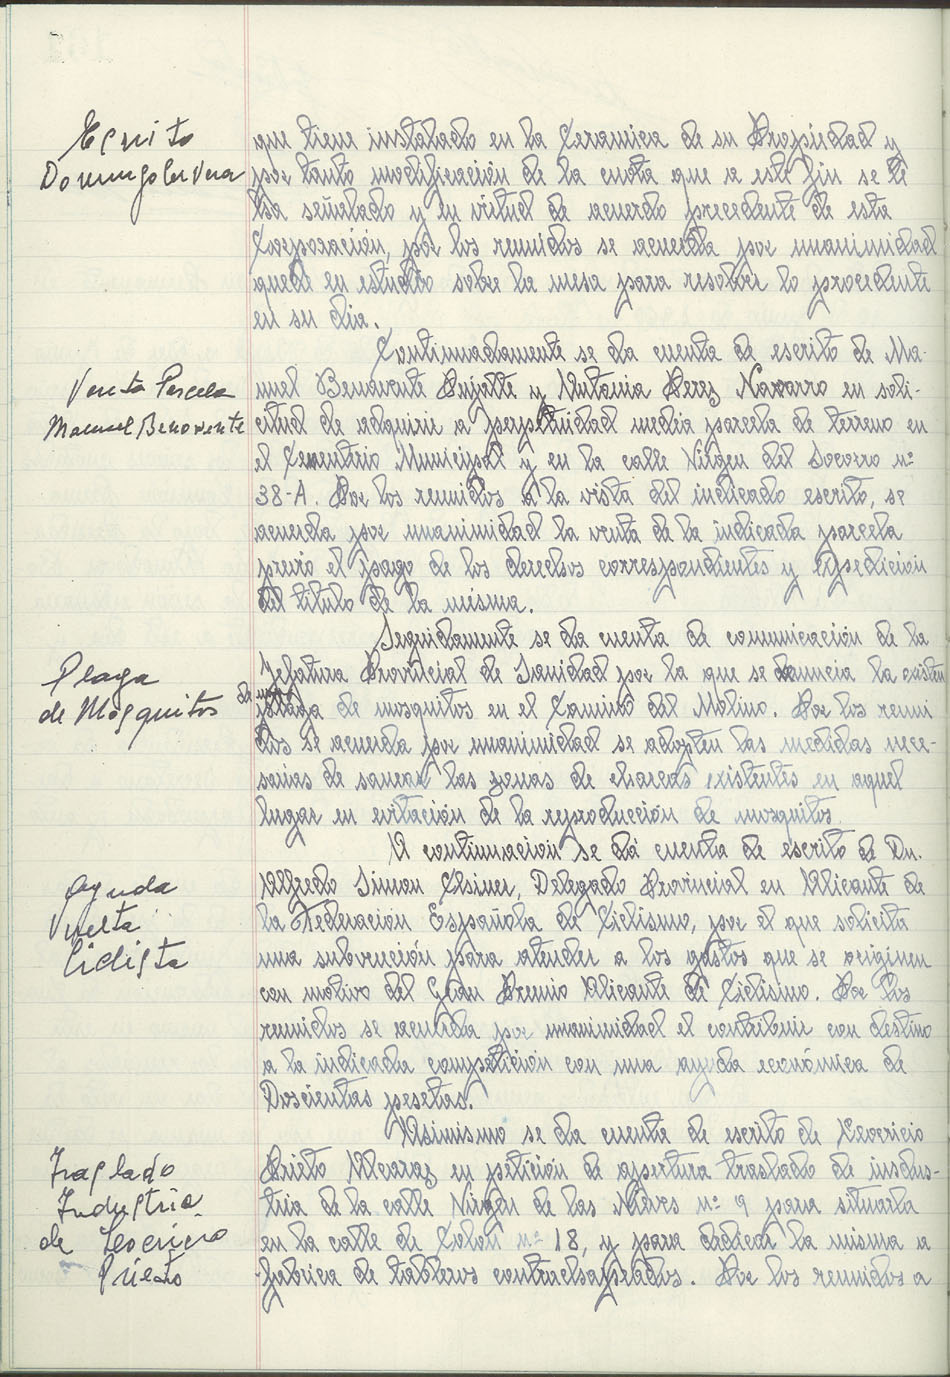 Escrito
Domingo Cervera
que tiene instalado en la Ceramica de su Propiedad y
por tanto modificación de la cuota que a este fin se le
ha señalado y en virtud de acuerdo precedente de esta
Corporación, por los reunidos se acuerda por unanimidad
quede en estudio sobre la mesa para resolver lo procedente
en su dia.
Continuadamente se da cuenta de escrito de Ma-
Venta Parcela
nuel Benavente y Antonia Perez Navarro en soli-
Manuel Benavente
citud de adquirir a perpetuidad media parcela de terreno en
el Cementerio Municipal y en la calle Virgen del Socorro nº
38-A. Por los reunidos a la vista del indicado escrito, se
acuerda por unanimidad la venta de la indicada parcela
previo el pago de los derechos correspondientes y expedición
del titulo de la misma.
Seguidamente se da cuenta de comunicación de la
Plaga
Jefatura Provincial de Sanidad por la que se denuncia la existen
de Mosquitos
plaga de mosquitos en el Camino del Molino. Por los reuni
dos se acuerda por unanimidad se adopten las medidas nece-
sarias de sanear las zonas de charcas existentes en aquel
lugar en evitación de la reproducción de mosquitos
A continuacion se da cuenta de escrito de Dn.
Ayuda
Alfredo Simon Delegado Provincial en Alicante de
Vuelta
la Federación Española de Ciclismo, por el que solicita
Ciclista
una subvención para atender a los gastos que se originen
con motivo del Gran Premio Alicante de Ciclismo. Por los
reunidos se acuerda por unanimidad el contribuir con destino
a la indicada competición con una ayuda económica de
Doscientas pesetas.
Asimismo se da cuenta de escrito de Leovricio
Traslado
Prieto Alcaraz en petición de apertura traslado de indus-
Industria
tria de la calle Virgen de las Nieves nº 9 para situarla
de
en la calle de Colon nº 18, y para dedicar la misma a
Prieto
fabrica de tableros contrachapeados. Por los reunidos a